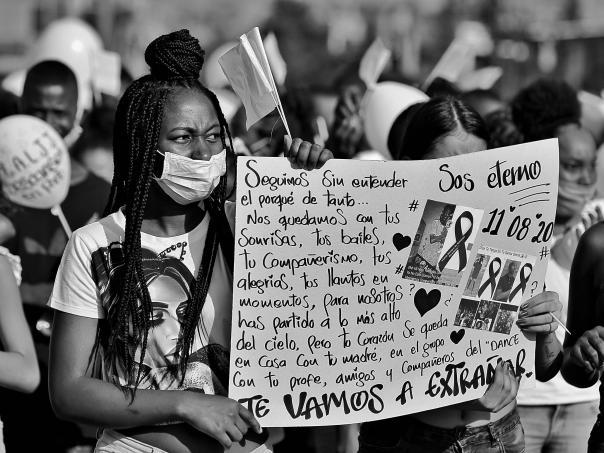 CALI
Seguimos Sin entender
el porqué de tanto...
Nos quedamos con tus
Sonrisas, tus bailes,
tu Compañerismo, tus
alegrias, tus llantos en
momentos, para nosotros
has partido a lo más alto
del cielo, pero tu Corazón Se queda
en Casa Con tu madre, en el grupo
Con tu profe, amigos y Compañeros del "DANCE
TE VAMOS A EXTRAÑAR.
Sos eterno
11'08'20
#
#
#
?
¿